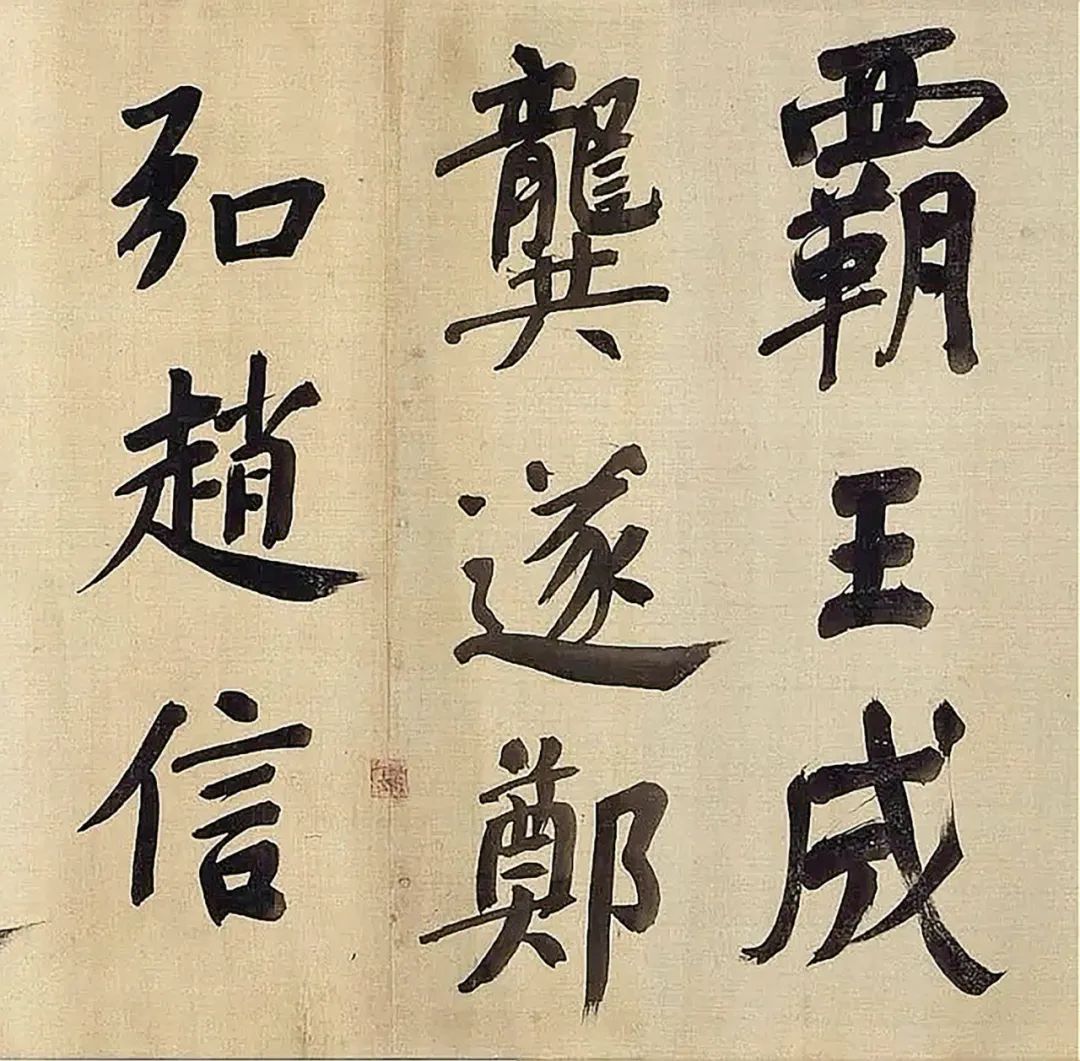 覇王成
龔遂鄭
弘趙信